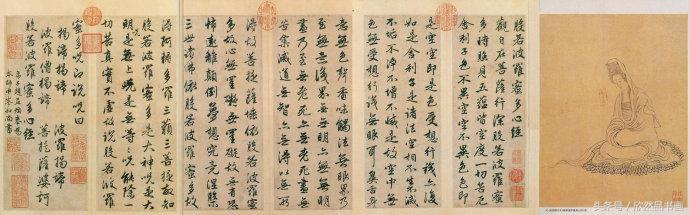 般若波羅蜜多心經
觀自在菩薩行深般若波羅蜜
多時照見五蘊皆空度一切苦厄
舍利子色不異空空不異色色即
是空空即是色受想行識亦復
如是舍利子是諸法空相不生不滅
不垢不淨不增不減是故空中無
色無受想行識無眼耳鼻舌身
意無色聲香味觸法無眼界乃
至無意識界無無明亦無無明
盡乃至無老死亦無老死盡無
苦集滅道無智亦無得以無所
得故菩提薩埵依般若波羅蜜
多故心無罣礙無罣礙故無有恐
怖遠離顛倒夢想究竟涅槃
三世諸佛依般若波羅蜜多故
得阿耨多羅三藐三菩提故知
般若波羅蜜多是大神咒是大
明咒是無上咒是無等等咒能除
一切苦真實不虛故說般若波羅
蜜多咒即說咒曰
揭諦揭諦 波羅揭諦
波羅僧揭諦 菩提薩婆訶
般若波羅蜜多心經
弟子趙孟頫奉為
本師中峯和尚書
头条号 / 欣然品书画